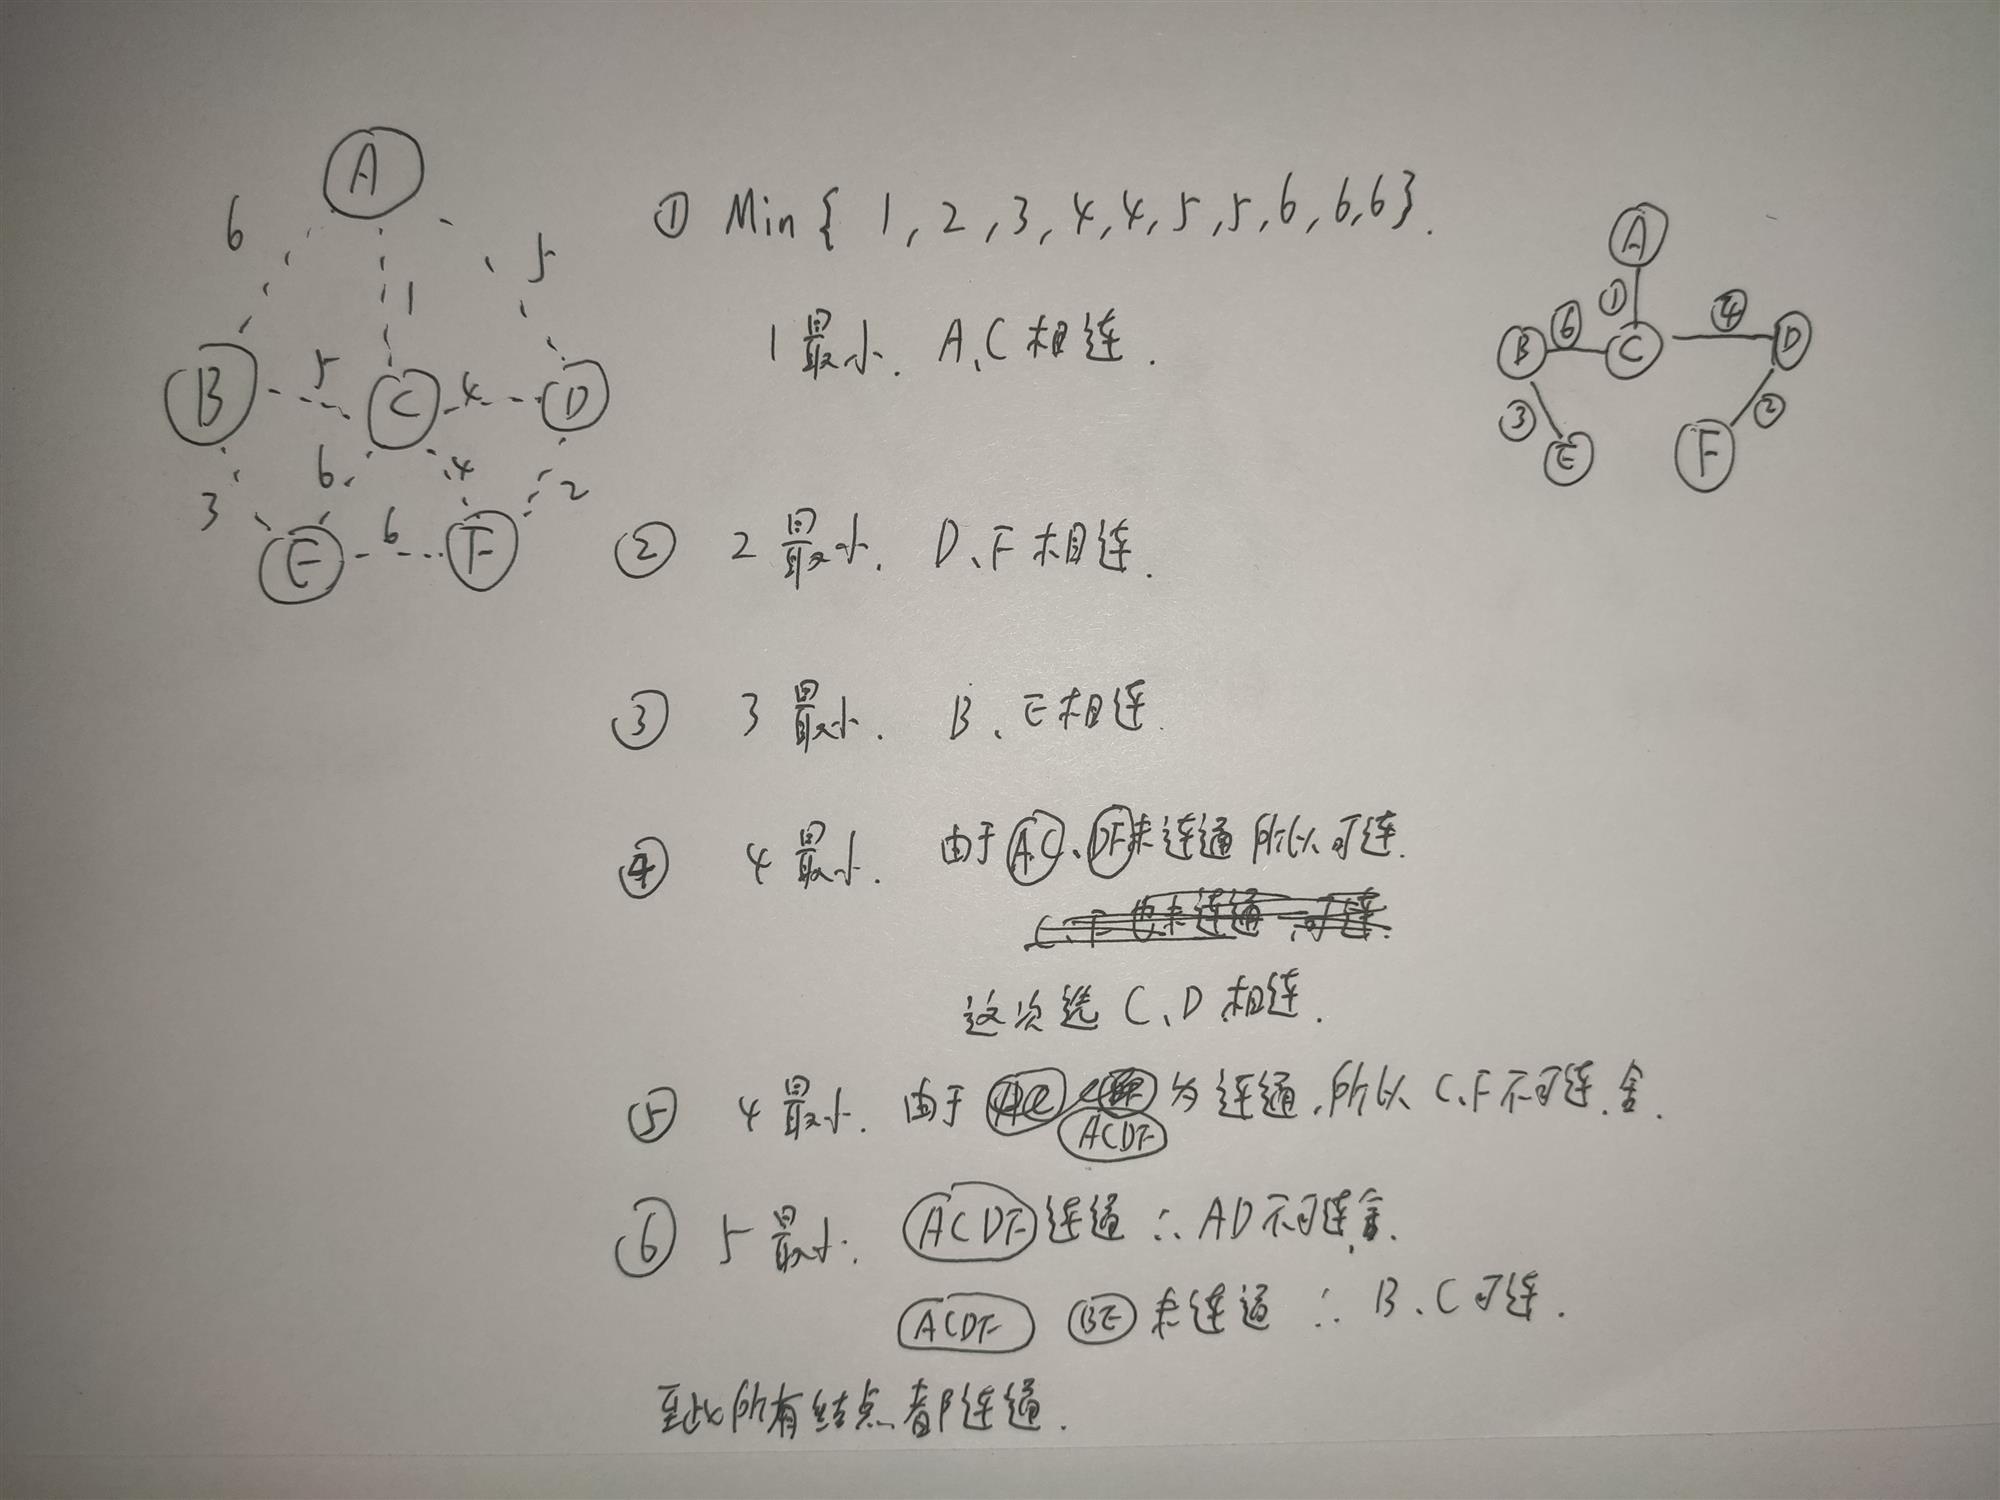 A
6
5
1
B
5
C
4
D
6
4
3
2
E
6
F
① Min { 1, 2, 3, 4, 4, 5, 5, 6, 6, 6 }.
1最小. A、C相连.
A
①
B
⑥
C
④
D
③
②
E
F
② 2最小. D、F相连.
③ 3最小. B、E相连.
④ 4最小. 由于AC、DF未连通 所以可连.
C、F也未连通 可连.
这次选C、D相连.
⑤ 4最小. 由于 为连通,所以C、F不可连.舍.
ACDF
⑥ 5最小. ACDF连通 ∴AD不可连,舍.
ACDF BE未连通 ∴ B、C可连.
至此所有结点都连通.